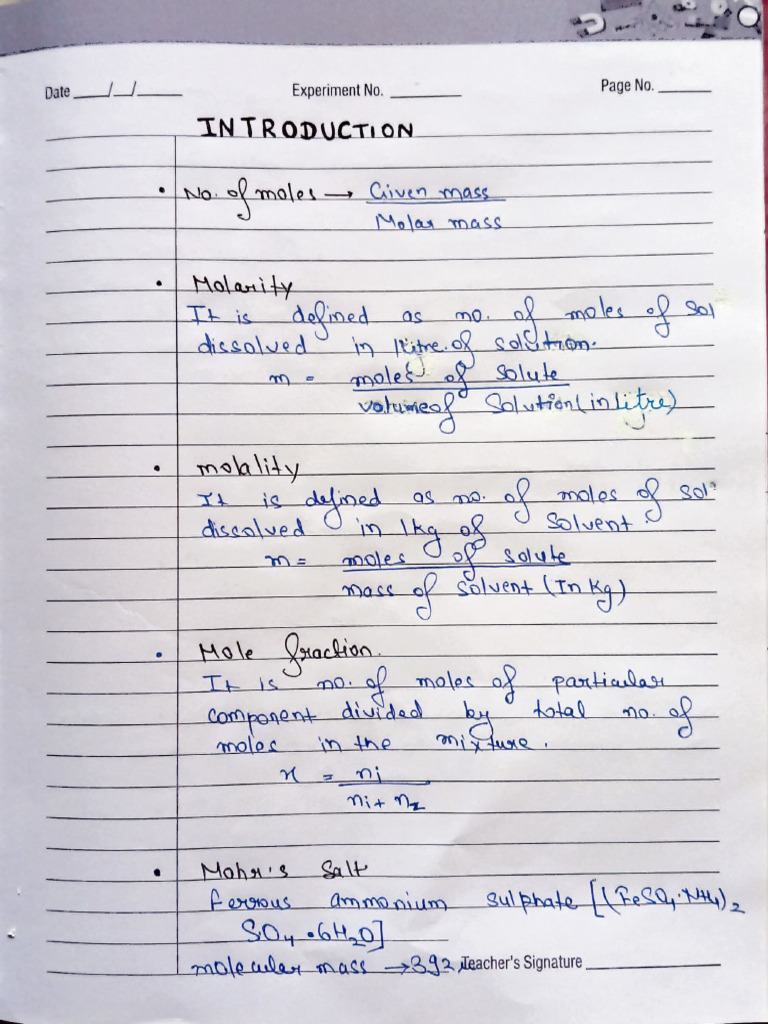 Date ___/__/____ Experiment No. ______ Page No. ______
INTRODUCTION
• No. of moles → Given mass
Molar mass
• Molarity
It is defined as no. of moles of Sol
dissolved in 1 litre of solution.
m = moles of solute
volume of Solution (in litre)
• molality
It is defined as no. of moles of sol
dissolved in 1kg of Solvent.
m = moles of solute
mass of solvent (In kg)
• Mole fraction.
It is no. of moles of particular
component divided by total no. of
moles in the mixture.
x = ni
ni + n2
• Mohr's Salt
ferrous ammonium sulphate [(FeSO4·NH4)2
SO4 •6H2O]
molecular mass → 392 Teacher's Signature ______